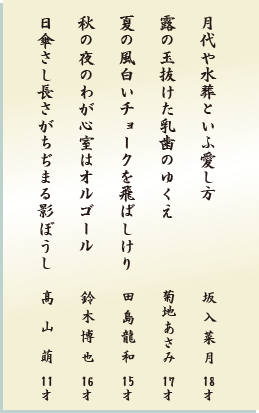 月代や水葬といふ愛し方 坂入菜月 18才
露の玉抜けた乳歯のゆくえ 菊地あさみ 17才
夏の風白いチョークを飛ばしけり 田島龍和 15才
秋の夜のわが心室はオルゴール 鈴木博也 16才
日傘さし長さがちぢまる影ぼうし 高山萌 11才